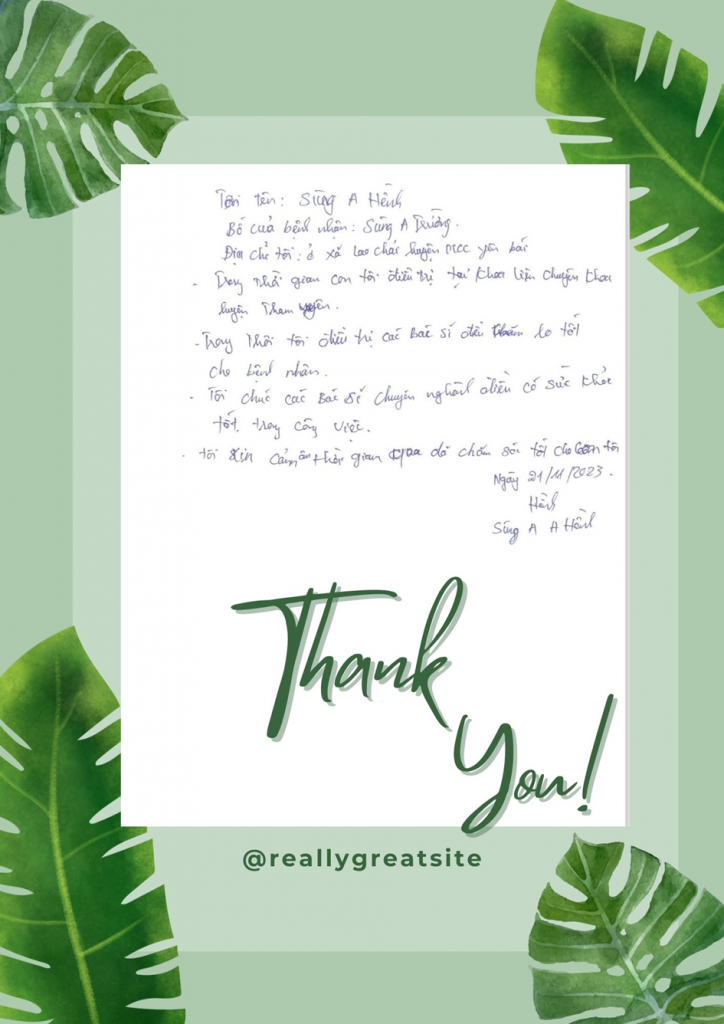 Tôi tên: Sùng A Hềnh
Bố của bệnh nhận: Sùng A Trường.
Địa chỉ tôi: ở xã Lao Chải huyện MCC yên bái
- Trong thời gian con tôi điều trị tại khoa liên chuyên khoa
huyện Than
- Trong Thời tôi điều trị các Bác sĩ đều lo tốt
cho bệnh nhân.
- Tôi chúc các Bác sĩ chuyên nghành điền có sức khỏe
tốt. trong công việc.
- tôi xin cảm ơn thời gian qua đã chăm sóc tốt cho con tôi
Ngày 21/11/2023.
Hềnh
Sùng A A Hềnh
Thank
You!
@reallygreatsite